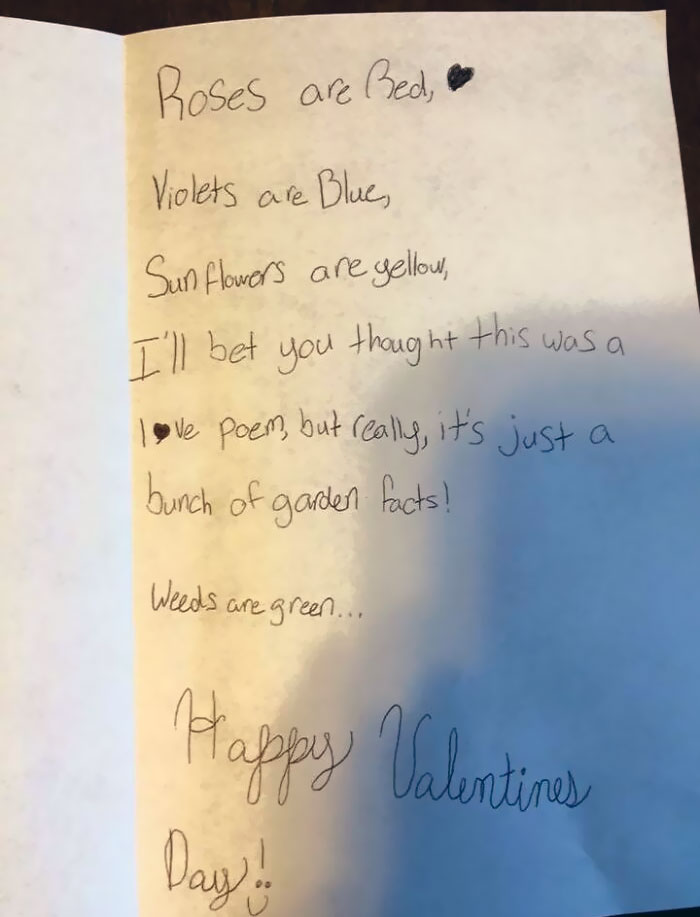 Roses are Red, ♥
Violets are Blue,
Sunflowers are yellow,
I'll bet you thought this was a
l♥ve poem, but really, it's just a
bunch of garden facts!
Weeds are green...
Happy Valentines
Day!